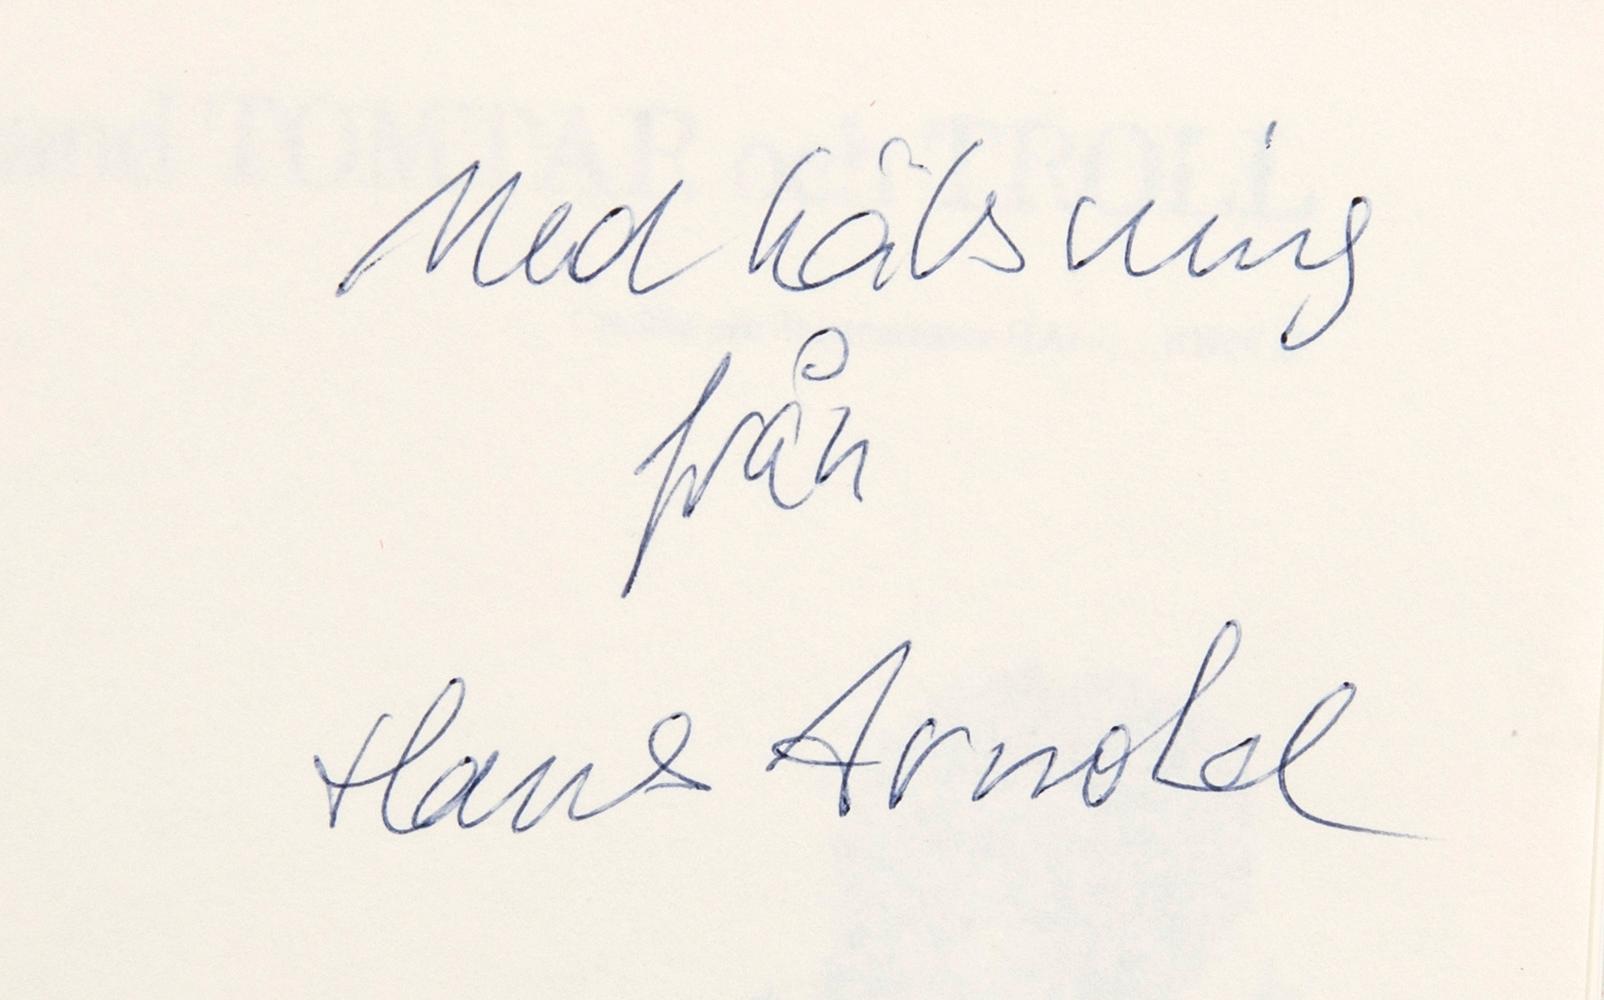 Med hälsning
från
Hans Arnold